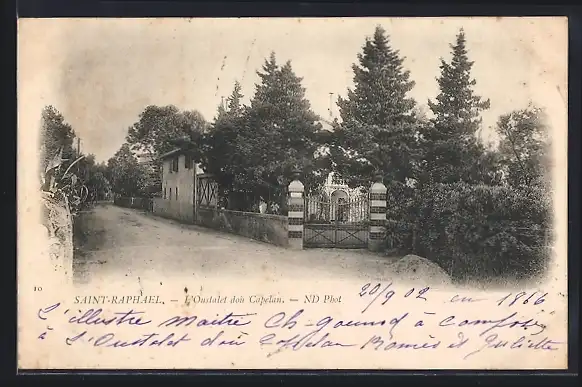 10
SAINT-RAPHAEL. — L'Oustalet doù Capelan. — ND Phot
20/9 02 en 1866
L'illustre maitre Ch. Gounod à composé
à L'Oustalet doù Capelan Roméo et Juliette